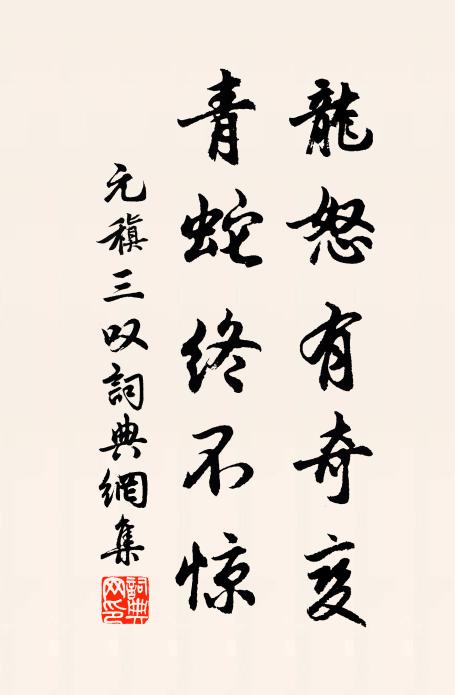 龍怒有奇变
青蛇终不惊
元稹三叹詞典網集
詞典網印